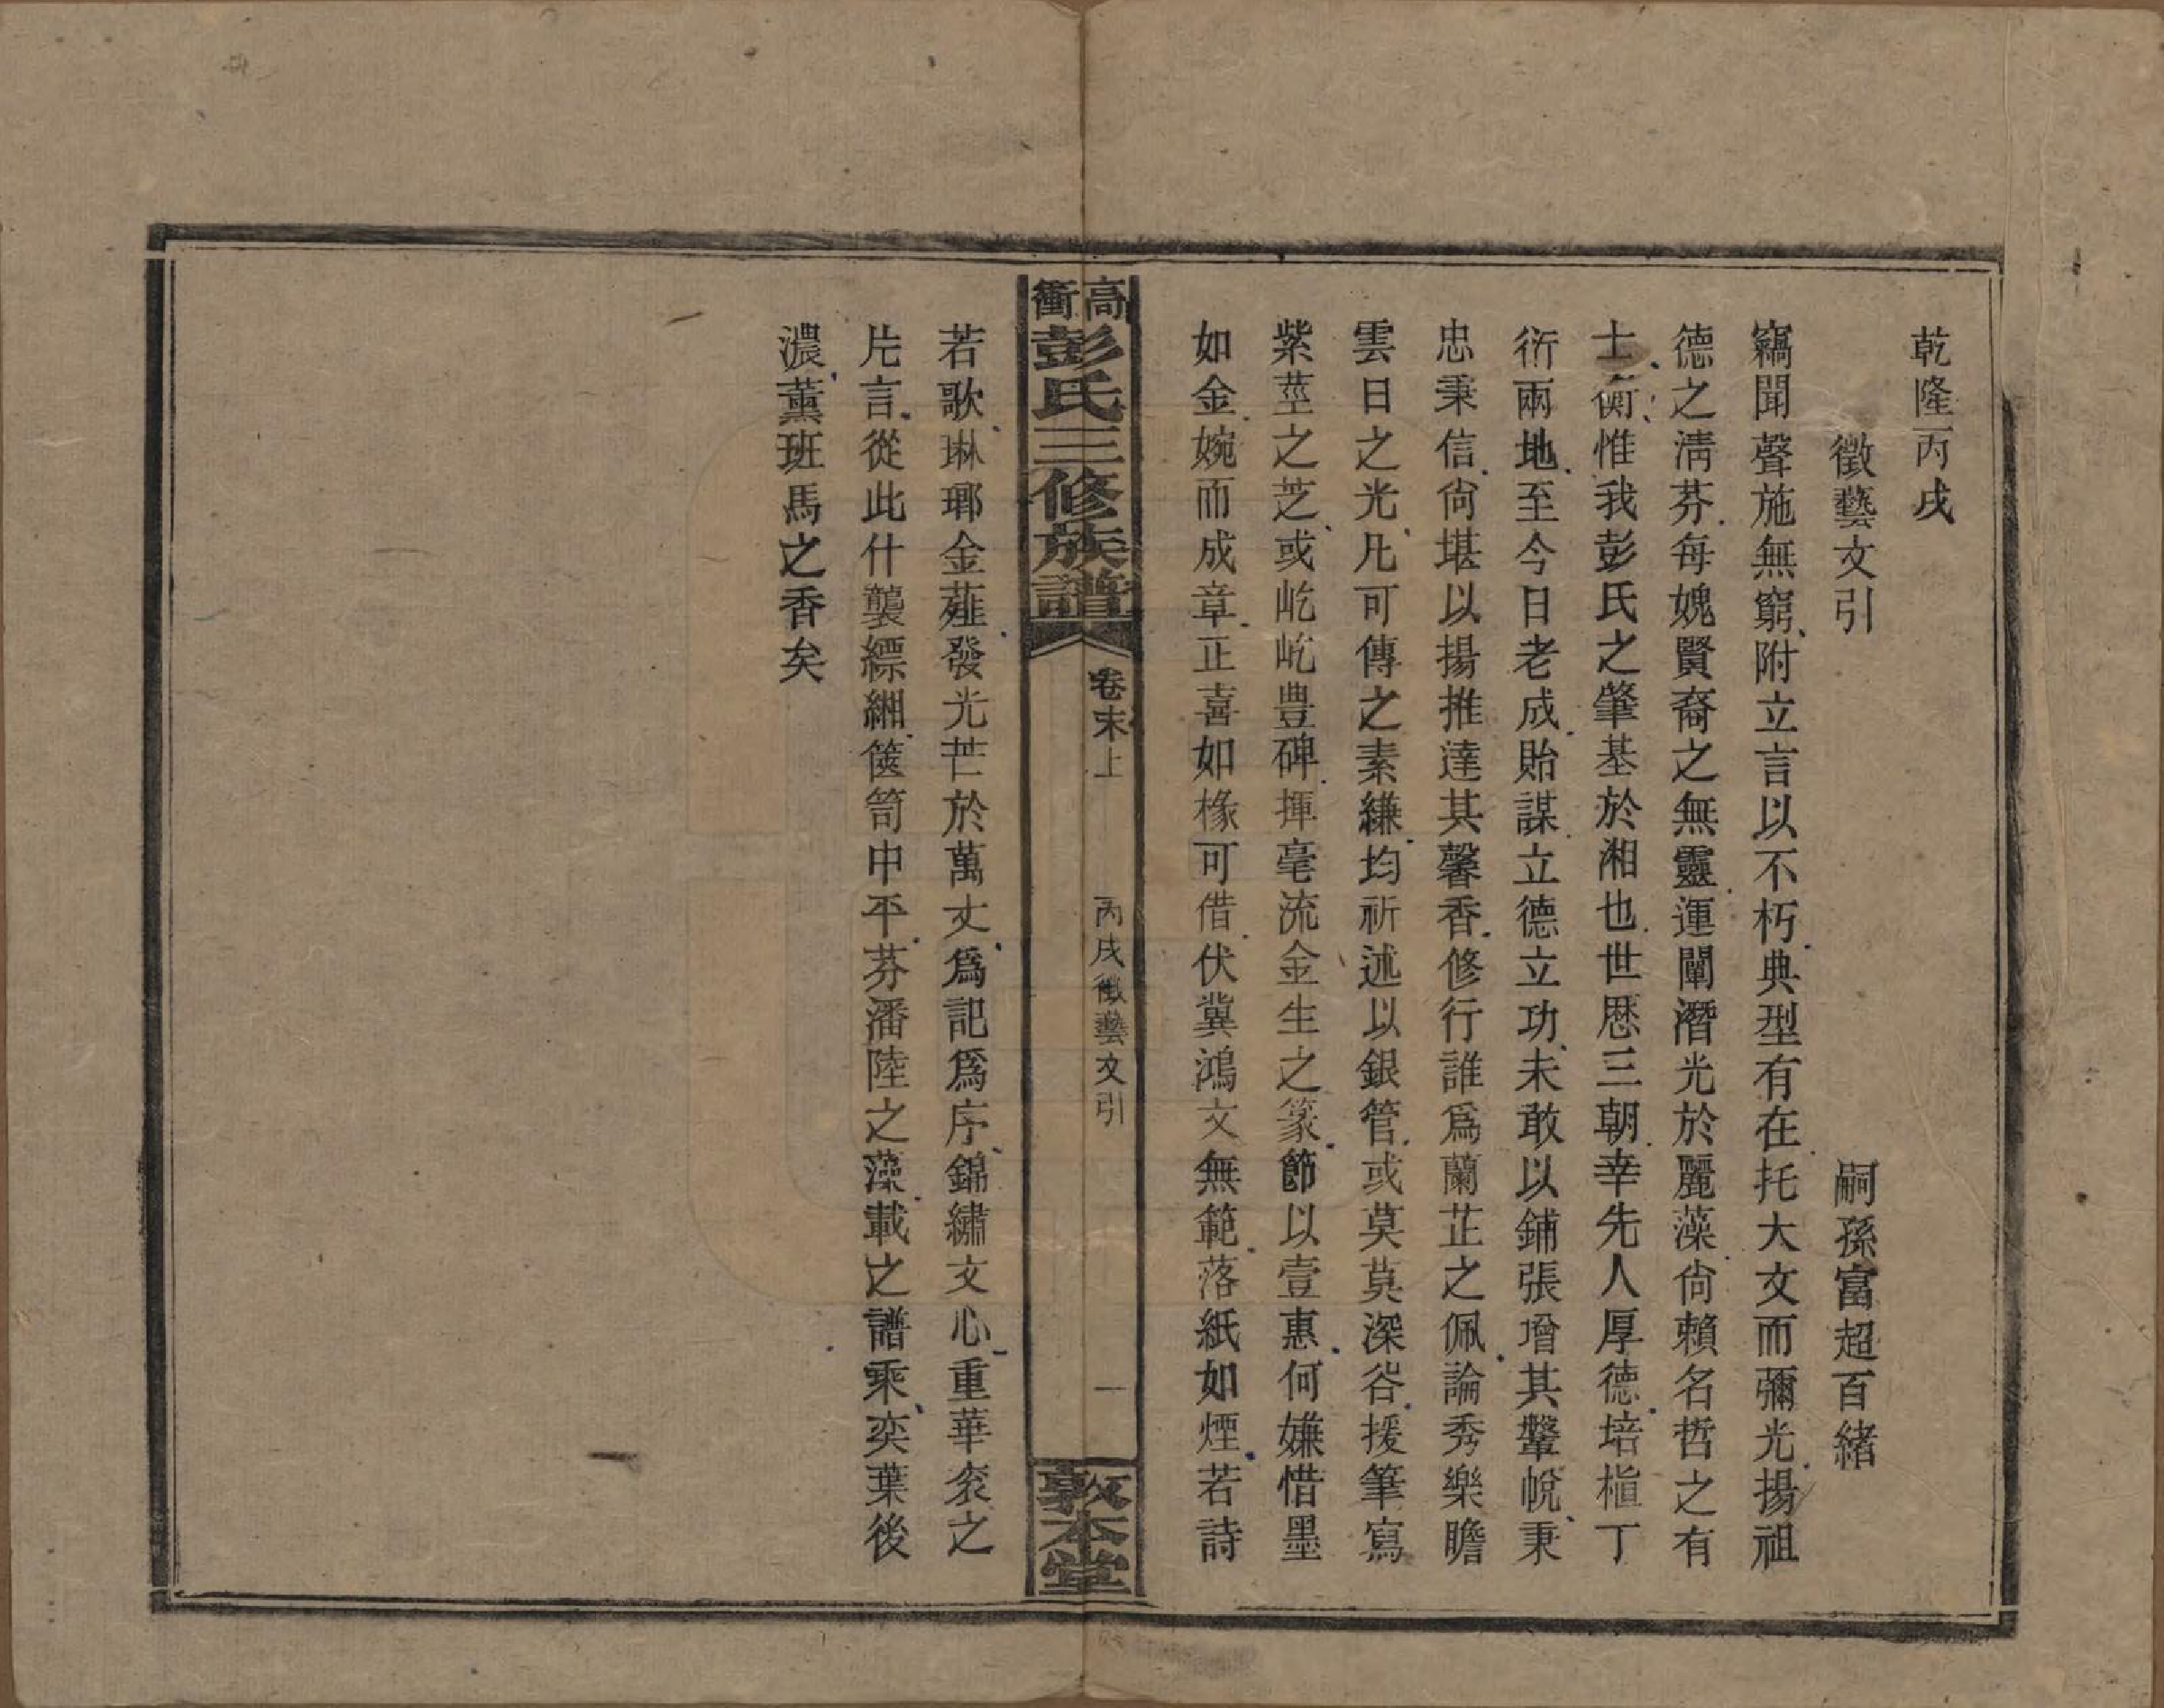 乾隆丙戌
徵藝文引
嗣孫富超百緒
竊聞聲施無窮附立言以不朽典型有在托大文而彌光揚祖
德之淸芬每媿賢裔之無靈運闡潛光於麗藻尙賴名哲之有
士衡惟我彭氏之肇基於湘也世歷三朝幸先人厚德培植丁
衍兩地至今日老成貽謀立德立功未敢以鋪張增其鞶帨秉
忠秉信尙堪以揚推達其馨香修行誰爲蘭芷之佩論秀樂瞻
雲日之光凡可傳之素縑均祈述以銀管或莫莫深谷援筆寫
紫莖之芝或屹屹豊碑揮毫流金生之篆節以壹惠何嫌惜墨
如金婉而成章正喜如椽可借伏冀鴻文無範落紙如煙若詩
高衝彭氏三修族譜
卷末上
丙戌徵藝文引
一
敦本堂
若歌琳瑯金薤發光芒於萬丈爲記爲序錦繡文心重華衮之
片言從此什襲縹緗篋笥中平芬潘陸之藻載之譜乘奕葉後
濃薰班馬之香矣